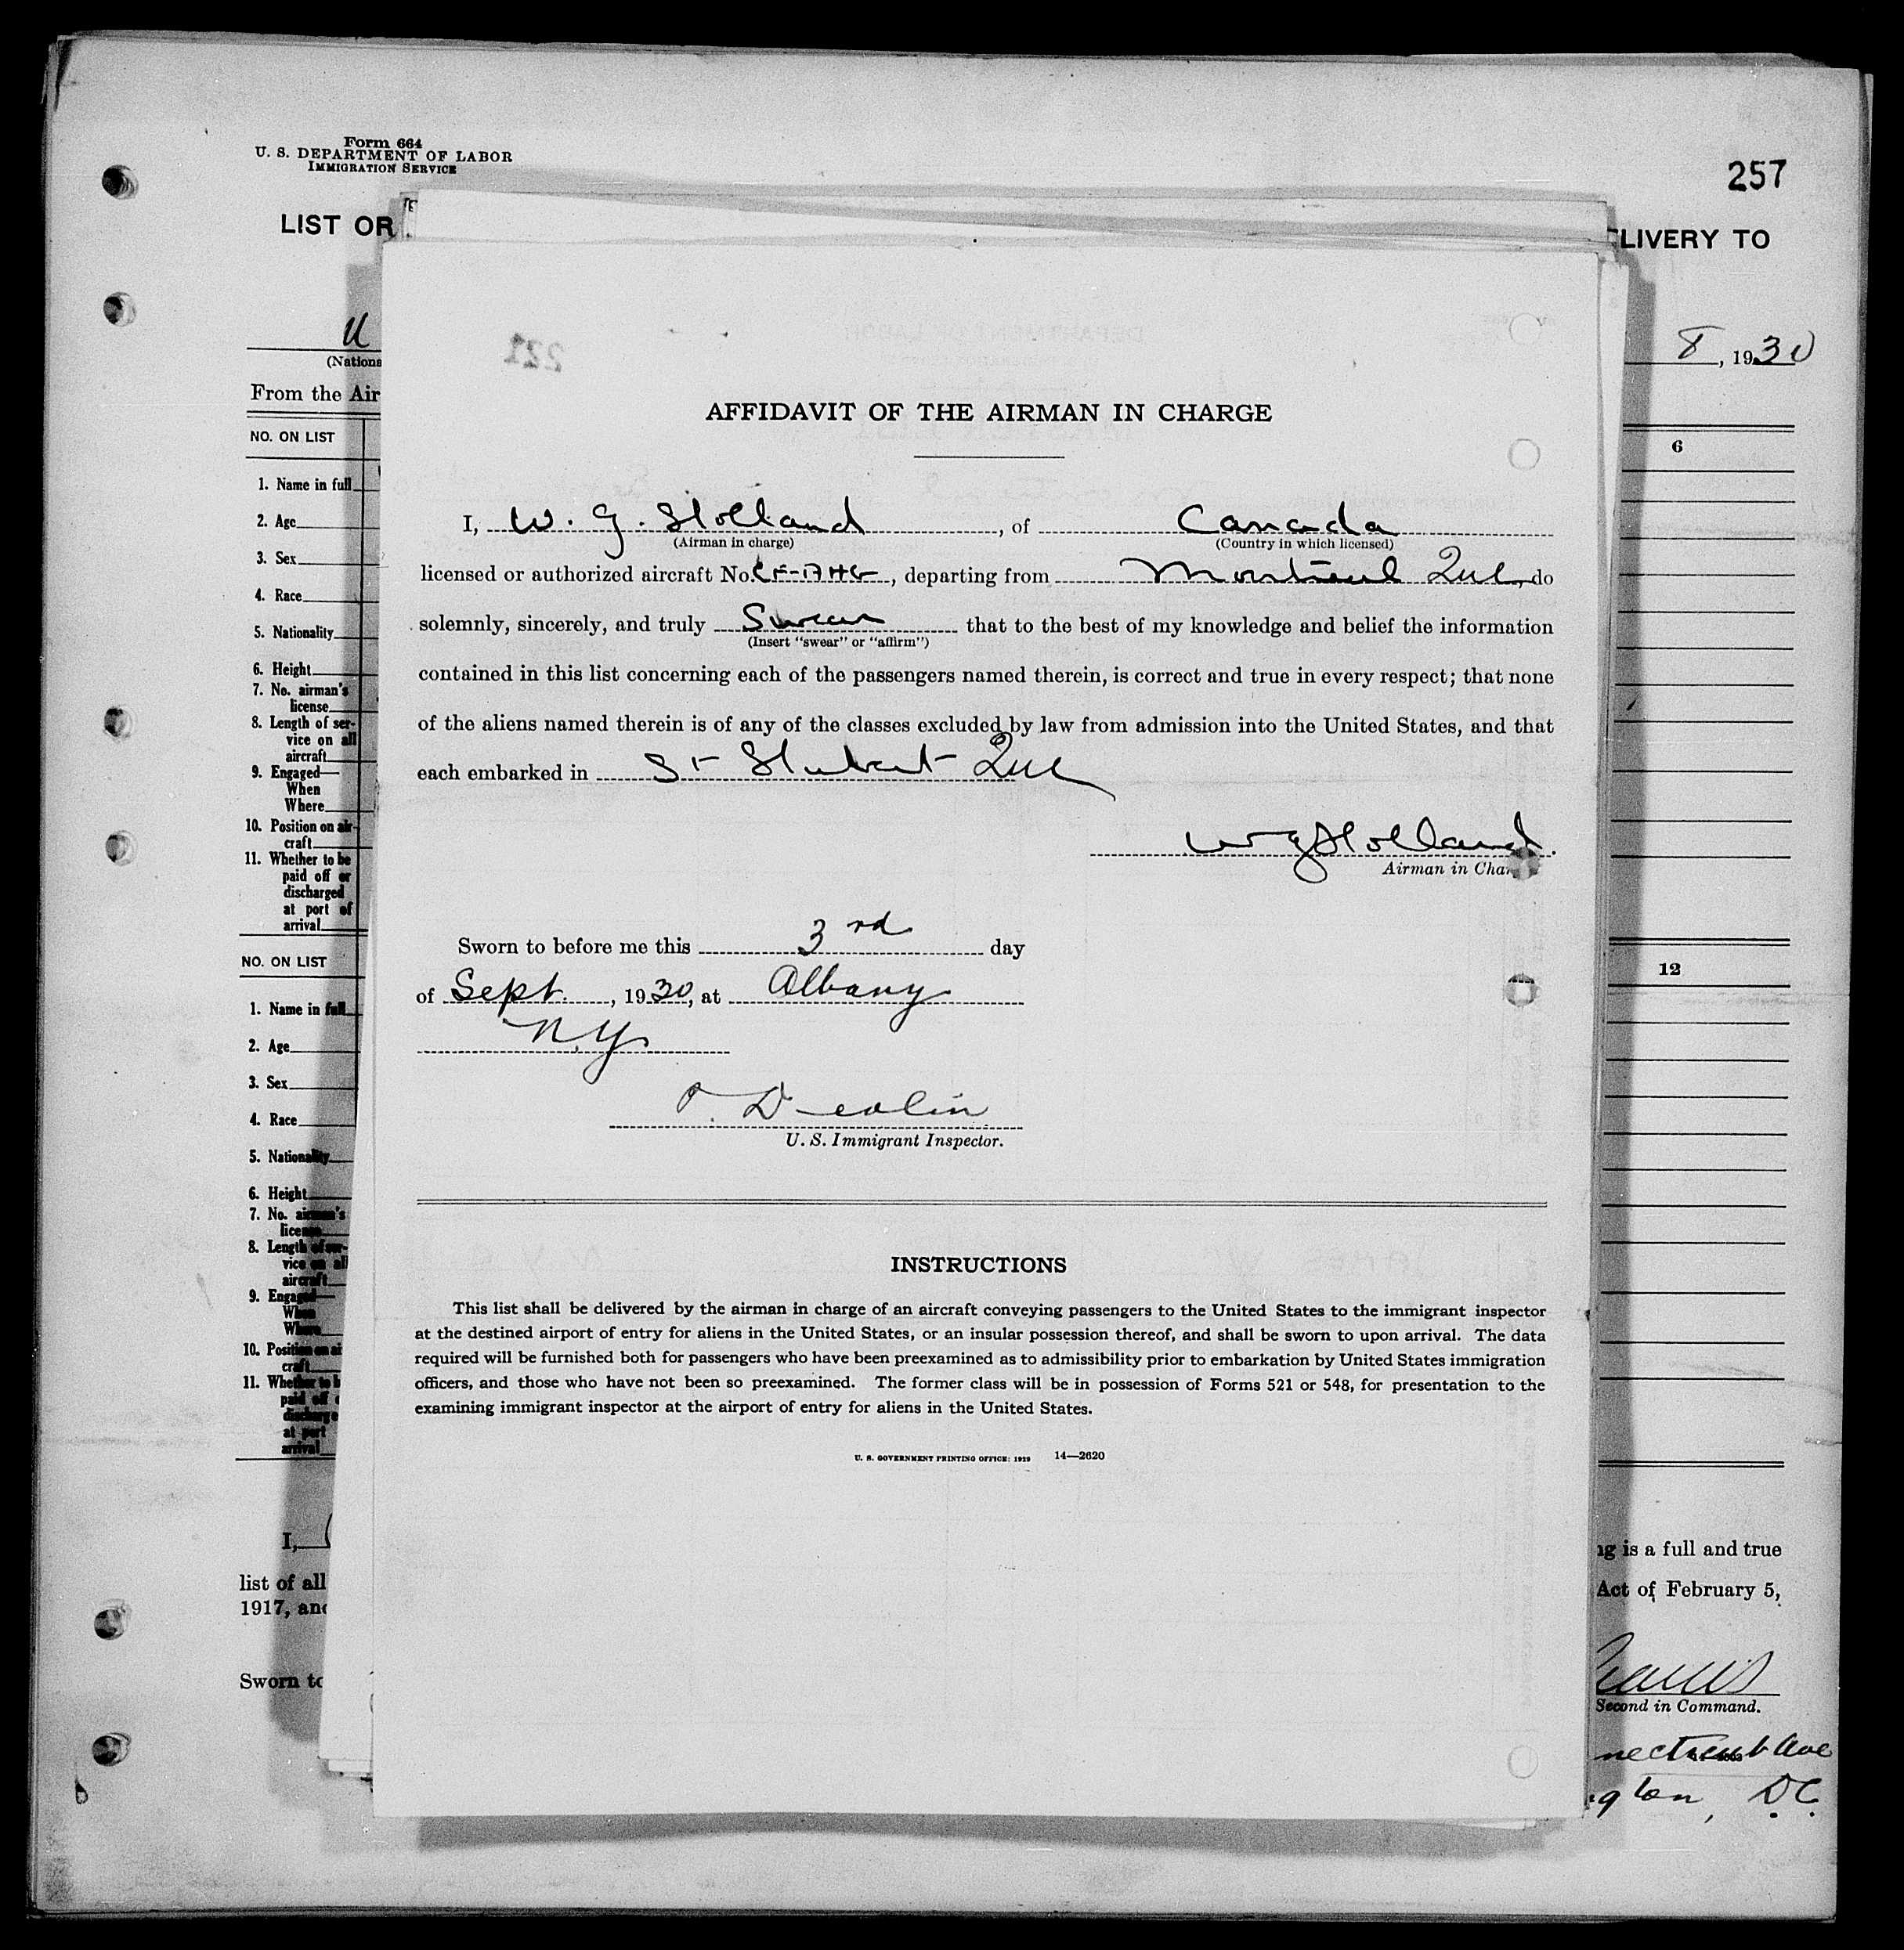 Form 664
U. S. DEPARTMENT OF LABOR
IMMIGRATION SERVICE
257
LIST OR
LIVERY TO
U
8, 1930
(Nationa
From the Air
NO. ON LIST
6
1. Name in full
2. Age
3. Sex
4. Race
5. Nationality
6. Height
7. No. airman's
license
8. Length of ser-
vice on all
aircraft
9. Engaged—
When
Where
10. Position on air-
craft
11. Whether to be
paid off or
discharged
at port of
arrival
NO. ON LIST
12
1. Name in full
2. Age
3. Sex
4. Race
5. Nationality
6. Height
7. No. airman's
license
8. Length of ser-
vice on all
aircraft
9. Engaged—
When
Where
10. Position on ai
craft
11. Whether to b
paid off o
discharge
at port
arrival
I,
list of all
1917, and
Sworn to
221
AFFIDAVIT OF THE AIRMAN IN CHARGE
I, W. G. Holland, of Canada
(Airman in charge) (Country in which licensed)
licensed or authorized aircraft No. CF-AHG, departing from Montreal Que, do
solemnly, sincerely, and truly Swear that to the best of my knowledge and belief the information
(Insert "swear" or "affirm")
contained in this list concerning each of the passengers named therein, is correct and true in every respect; that none
of the aliens named therein is of any of the classes excluded by law from admission into the United States, and that
each embarked in St Hubert Que
W G Holland.
Airman in Char
Sworn to before me this 3rd day
of Sept., 1930, at Albany
N.Y.
Devlin
U. S. Immigrant Inspector.
INSTRUCTIONS
This list shall be delivered by the airman in charge of an aircraft conveying passengers to the United States to the immigrant inspector
at the destined airport of entry for aliens in the United States, or an insular possession thereof, and shall be sworn to upon arrival. The data
required will be furnished both for passengers who have been preexamined as to admissibility prior to embarkation by United States immigration
officers, and those who have not been so preexamined. The former class will be in possession of Forms 521 or 548, for presentation to the
examining immigrant inspector at the airport of entry for aliens in the United States.
U. S. GOVERNMENT PRINTING OFFICE: 1929 14—2620
ng is a full and true
Act of February 5,
Second in Command.
necticut Ave
gton, D.C.